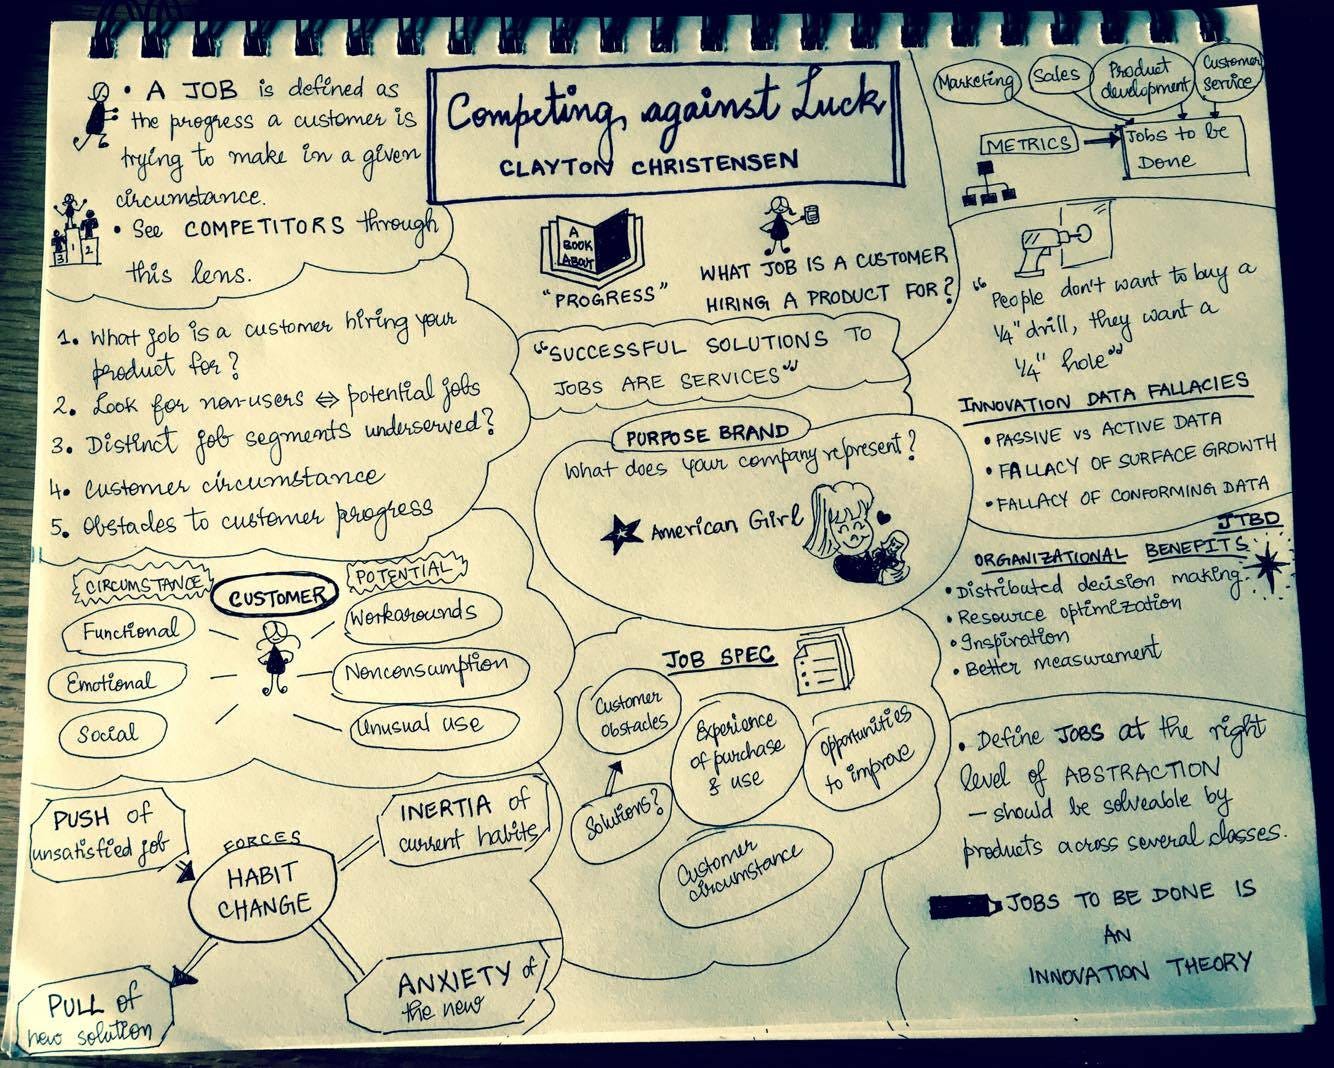 • A JOB is defined as
the progress a customer is
trying to make in a given
circumstance.
• See COMPETITORS through
this lens.
1
2
3
Competing against Luck
CLAYTON CHRISTENSEN
A
BOOK
ABOUT
"PROGRESS"
WHAT JOB IS A CUSTOMER
HIRING A PRODUCT FOR?
"SUCCESSFUL SOLUTIONS TO
JOBS ARE SERVICES"
Marketing
Sales
Product
development
Customer
service
METRICS
Jobs to be
Done
"People don't want to buy a
1/4" drill, they want a
1/4" hole"
INNOVATION DATA FALLACIES
• PASSIVE vs ACTIVE DATA
• FALLACY OF SURFACE GROWTH
• FALLACY OF CONFORMING DATA
1. What job is a customer hiring your
product for?
2. Look for non-users ⇔ potential jobs
3. Distinct job segments underserved?
4. Customer circumstance
5. Obstacles to customer progress
PURPOSE BRAND
What does your company represent?
American Girl
JTBD
ORGANIZATIONAL BENEFITS
• Distributed decision making.
• Resource optimization
• Inspiration
• Better measurement
CIRCUMSTANCE
CUSTOMER
POTENTIAL
Functional
Emotional
Social
Workarounds
Nonconsumption
Unusual use
JOB SPEC
Customer
obstacles
Experience
of purchase
& use
Opportunities
to improve
Solutions?
Customer
circumstance
• Define JOBS at the right
level of ABSTRACTION
— should be solveable by
products across several classes.
JOBS TO BE DONE IS
AN
INNOVATION THEORY
PUSH of
unsatisfied job
INERTIA of
current habits
FORCES
HABIT
CHANGE
PULL of
new solution
ANXIETY of
the new